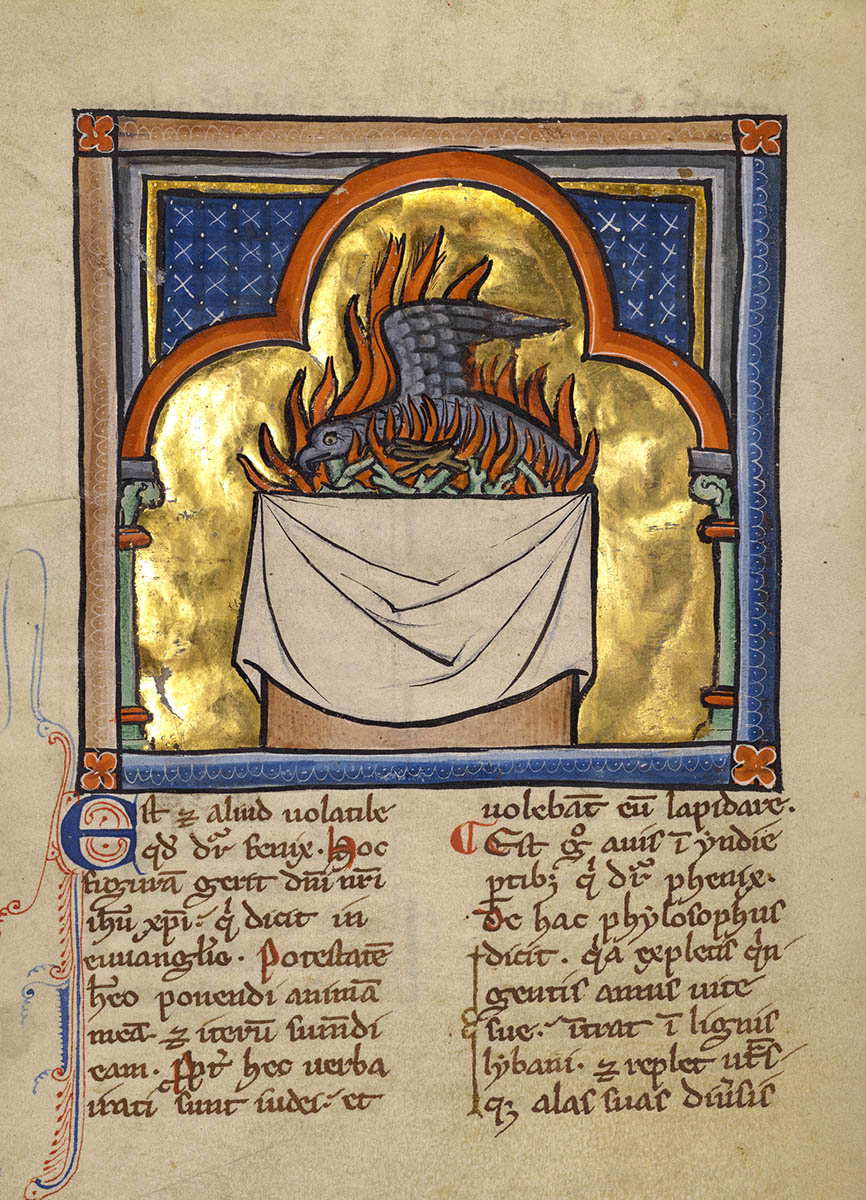 Est ⁊ aliud uolatile
qd̄ dr̄ fenix. Hoc
figurā gerit dnī nrī
ihū xpī. qͥ dicit in
euuangl̄io. Potestatē
h̄eo ponendi animā
meā. ⁊ iterū sumēdi
eam. Propt̄ hec uerba
irati sunt iudei. et
uolebāt eū lapidare.
Est gͦ auis ī yndie
ꝑtibȝ qͥ dr̄ phenix.
De hac phylosophus
dicit. qͥa expletis qͥn
gentis annis uite
sue. ītrat ī lignis
lybani. ⁊ replet utͣsꝫ
qꝫ alas suas diuͥsis